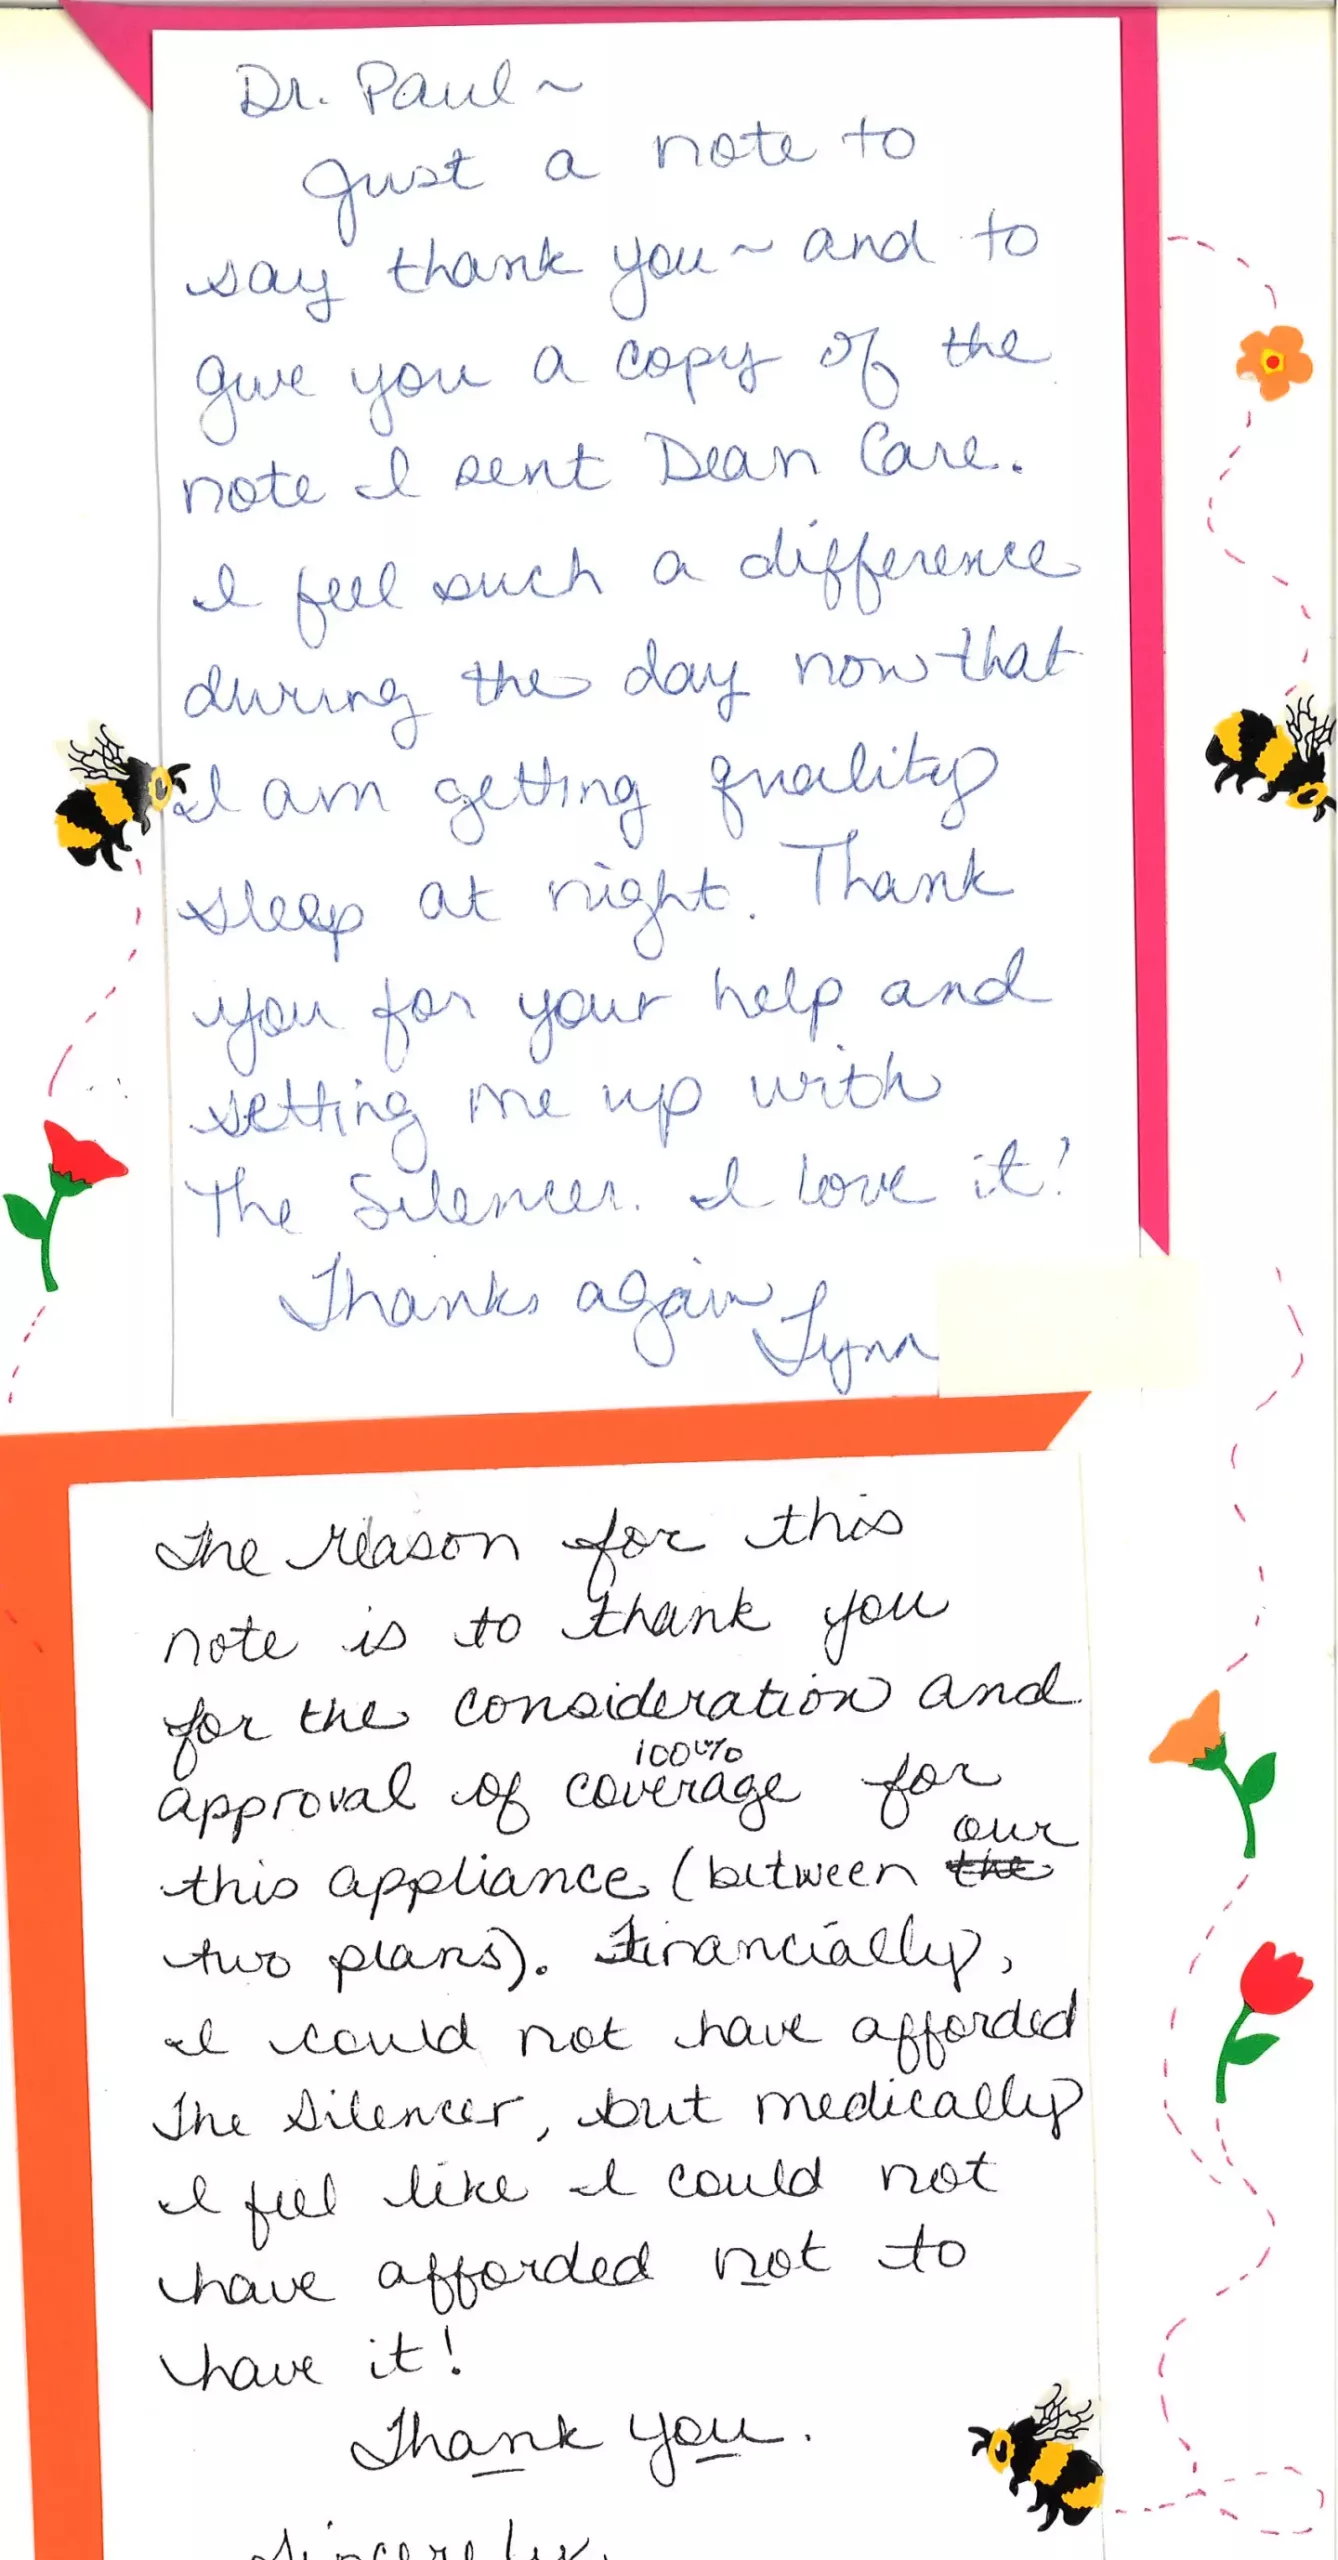 Dr. Paul~
Just a note to
say thank you~ and to
give you a copy of the
note I sent Dean Care.
I feel such a difference
during the day now that
I am getting quality
sleep at night. Thank
you for your help and
setting me up with
The Silencer. I love it!
Thanks again
Lynn
The reason for this
note is to thank you
for the consideration and
100%
approval of coverage for
our
this appliance (between the
two plans). Financially,
I could not have afforded
The Silencer, but medically
I feel like I could not
have afforded not to
have it!
Thank you.
Sincerely,